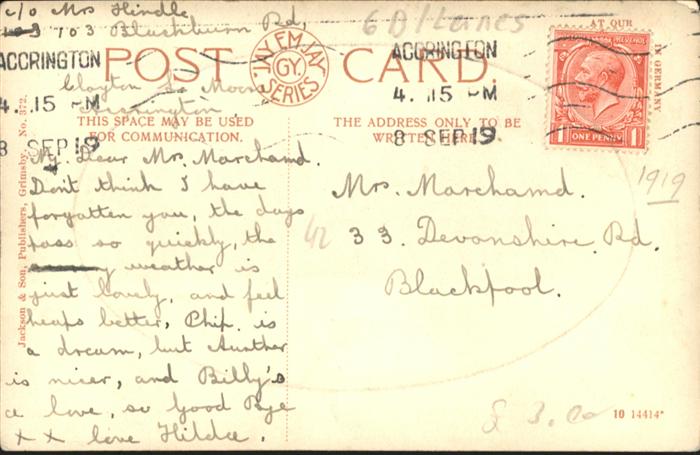 c/o Mrs Hindle
103 Blackburn Rd,
Clayton Le Moors
Accrington
6 B/Lancs
ACCRINGTON
4. 15 PM
8 SEP 19
ACCRINGTON
4. 15 PM
8 SEP 19
POST CARD.
JAY EM JAY
GY.
SERIES
AT OUR
IN GERMANY
ONE PENNY
1 1
THIS SPACE MAY BE USED
FOR COMMUNICATION.
THE ADDRESS ONLY TO BE
WRITTEN HERE.
My Dear Mrs. Marchamd.
Dont think I have
forgotten you, the days
pass so quickly, the
weather is
just lovely, and feel
heaps better, Chip. is
a dream, but
is nicer, and Billy's
a love, so Good Bye
x x love Hilda.
Mrs. Marchamd.
33. Devonshire Rd.
Blackpool.
42
1919
Jackson & Son, Publishers, Grimsby. No. 372.
10 14414*